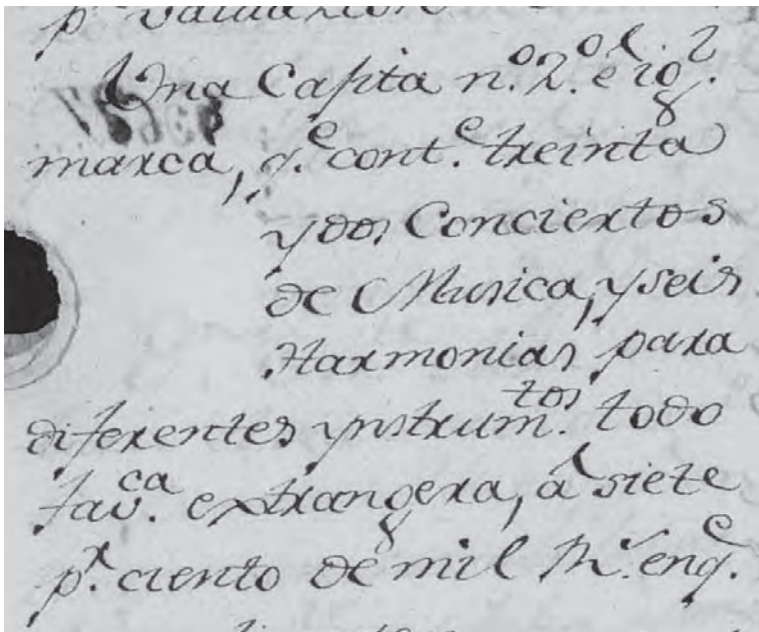 pr. valuacion
Una Caxita n.º 2.º e ig.l
marca, q.e cont.e treinta
y dos Conciertos
de Musica, y seis
Harmonias para
diferentes ynstrum.tos todo
fav.ca extrangera, â siete
p.r ciento de mil Rˢ. en q.e